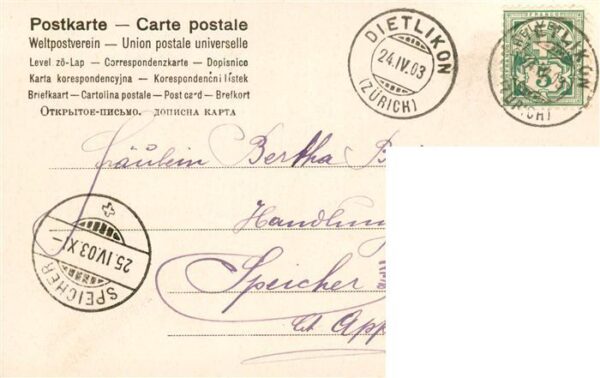 Postkarte — Carte postale
Weltpostverein — Union postale universelle
Level zö-Lap — Correspondenzkarte — Dopisnice
Karta korespondencyjna — Korespondenční lístek
Briefkaart — Cartolina postale — Post card — Brefkort
Открытое-письмо. дописна карта
DIETLIKON
24.IV.03
(ZÜRICH)
FRANCO
DIETLIKON
5
(ZÜRICH)
Fräulein Bertha
Handlung
Speicher
Ct. App
SPEICHER
25.IV.03.XI-